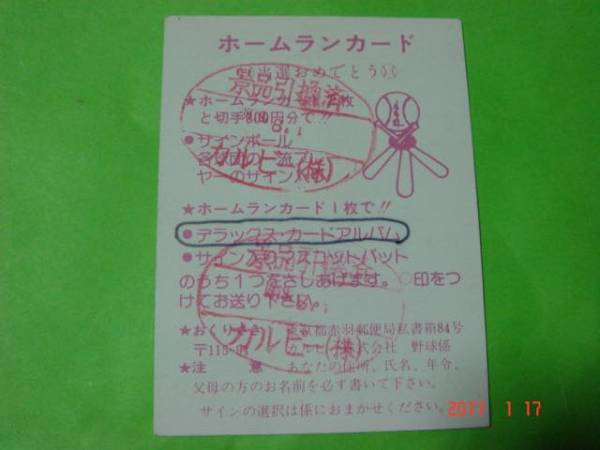 ホームランカード
当選おめでとう!!
景品引換済
★ホームランカード 枚
と切手800円分で!!
8. 1.
●サインボール
各球団の一流プレー
ヤーのサイン
カルビー(株)
★ホームランカード1枚で!!
●デラックス・カードアルバム
●サイン入りマスコットバット
景品引換済
のうち1つをさしあげます。○印をつ
けてお送り下さい。
★おくりさき 東京都赤羽郵便局私書箱84号
〒115-91 カルビー 株式会社 野球係
カルビー(株)
★注 意 あなたの住所、氏名、年令、
父母の方のお名前を必す書いて下さい。
サインの選択は係におまかせください。
2011 1 17